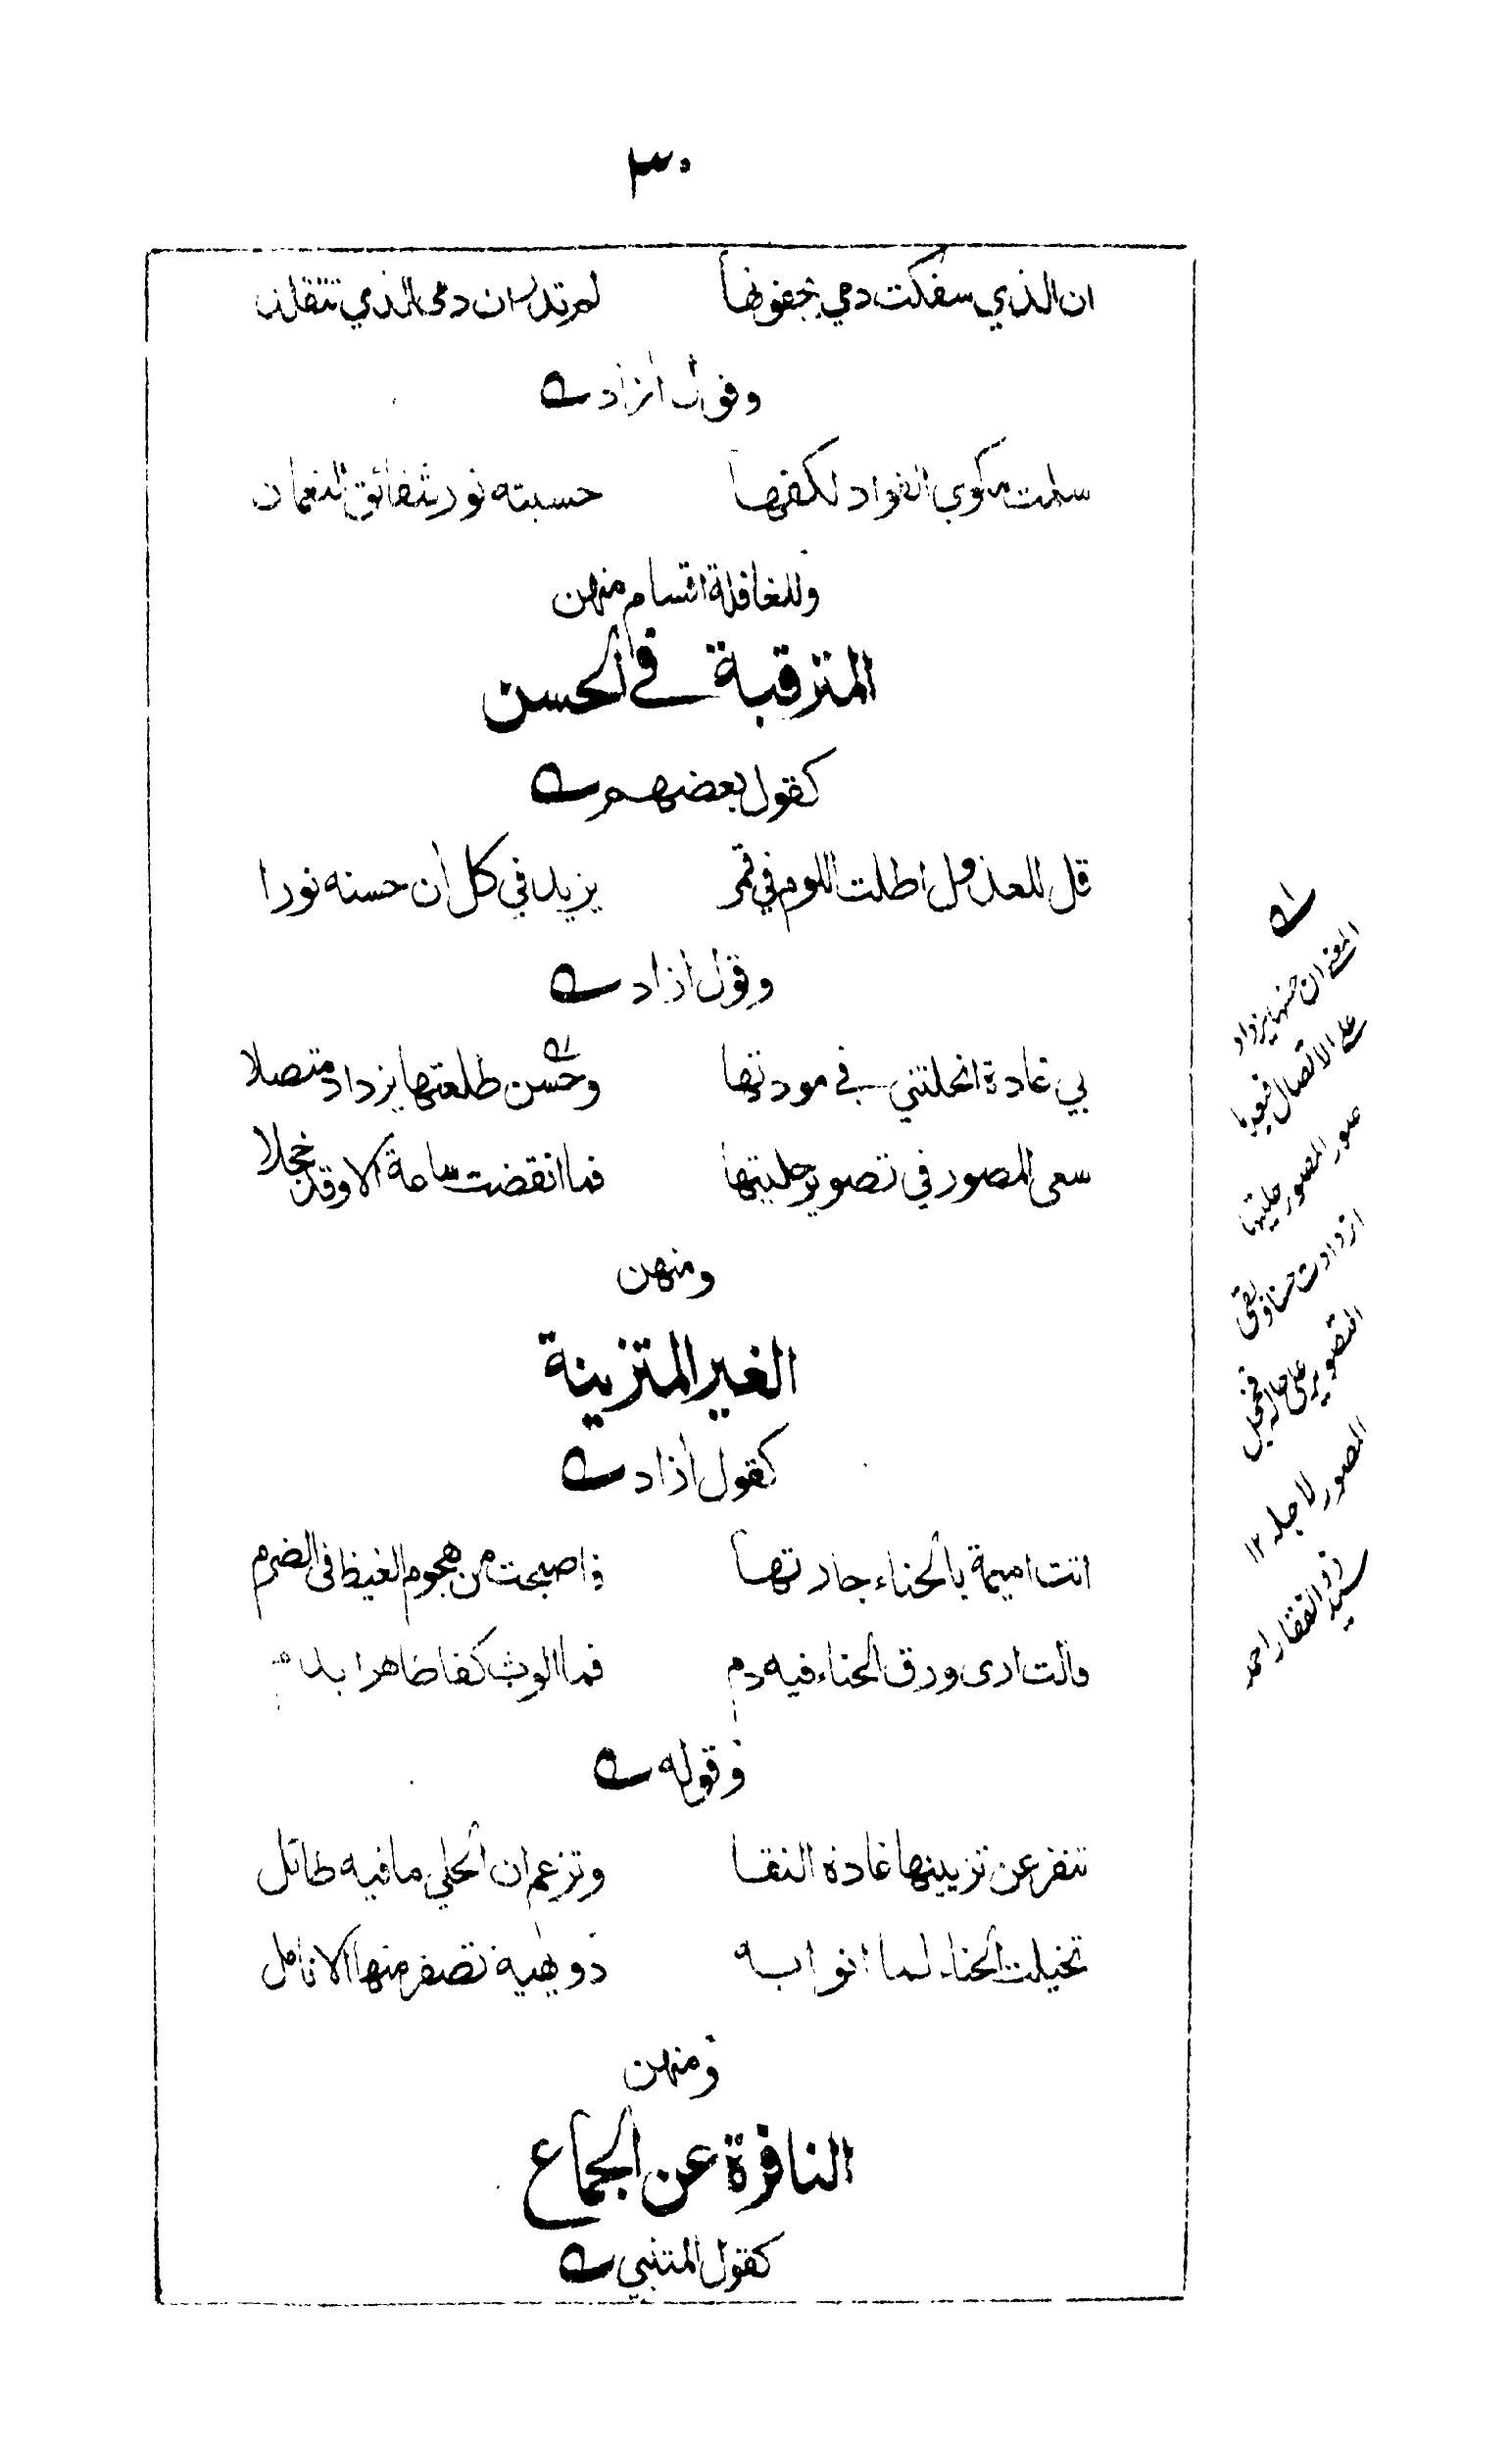 ٣٠
ان الذي سفكت دمي بجفونها لم تدر ان دمي الذي تتقلد
وقول آزاد
سلمت مكوي الفواد لكفها حسبته نور شقائق النعمان
وللغافلة اقسام منهن
المترقبة في الحسن
كقول بعضهم
قل للعذول اطلت اللوم في قمر يزيد في كل آن حسنه نورا
وقول آزاد
بي غادة انحلتني في مودتها وحسن طلعتها يزداد متصلا
سعى المصور في تصوير حليتها فما انقضت ساعة الا وقد خجلا
ومنهن
الغير المتزينة
كقول آزاد
اتت اميمة بالحناء جارتها فاصبحت من هجوم الغيظ في الضرم
قالت ارى ورق الحناء فيه دم فما الوث كفا طاهرا بدم
وقوله
تنفر عن تزيينها غادة النقا وتزعم ان الحلي ما فيه طائل
تخيلت الحناء لما اتوا به دويهية تصفر منها الانامل
ومنهن
النافرة عن الجماع
كقول المتنبي
المعنى ان حسنها يزداد
على الاتصال فبعد ما
صور المصور حليتها
ازدادت حسنا وبقى
التصوير على حاله فخجل
المصور لاجله ١٢
سيد ذو الفقار احمد